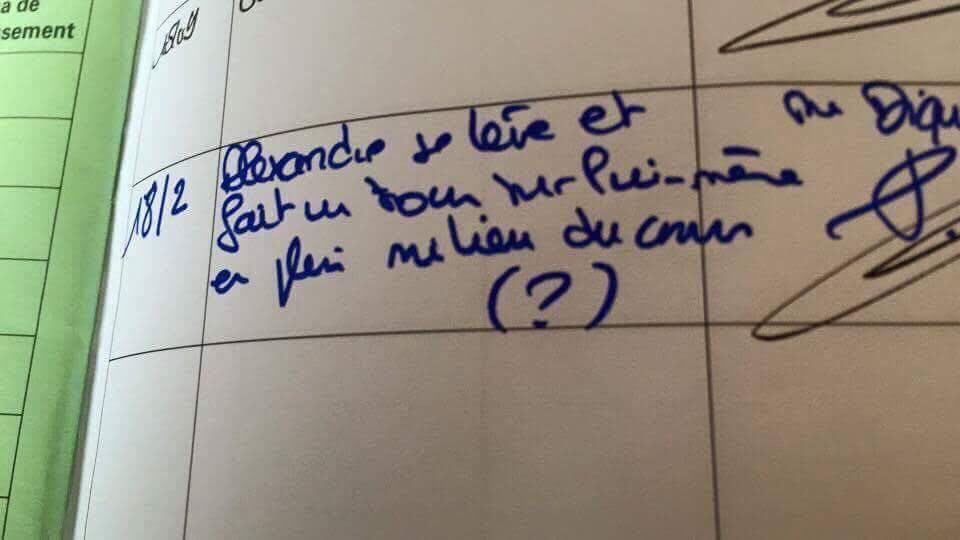 a de
ssement
18/09
18/2
Alexandre se lève et
fait un tour sur lui-même
en plein milieu du cours
(?)
Mme